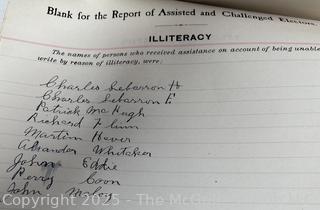 Blank for the Report of Assisted and Challenged Electors.
ILLITERACY
The names of persons who received assistance on account of being unable
write by reason of illiteracy, were:
Charles Lebarron H
Charles Lebarron F
Patrick McHugh
Richard Flinn
Martin Hever
Alexander Whitaker
John Eddie
Perry Coon
John Maloy
Copyright 2025 - DCWorldA